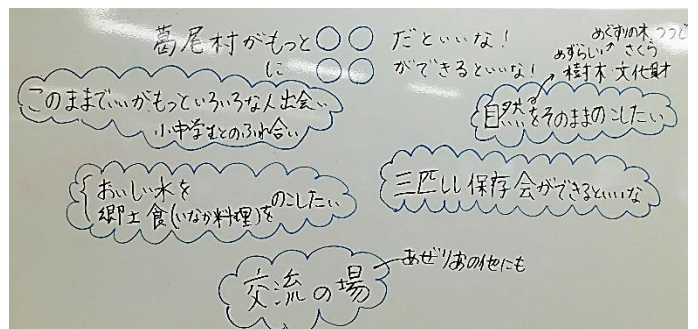 葛尾村がもっと○○だといいな!
に○○ができるといいな!
めぐすりの木 つつじ
めずらしい さくら
樹木・文化財
このままでいいがもっといろいろな人出会い
小中学生とのふれ合い
自然をそのままのこしたい
おいしい水を
郷土食(いなか料理)をのこしたい
三匹しし保存会ができるといいな
交流の場
あぜりあの他にも